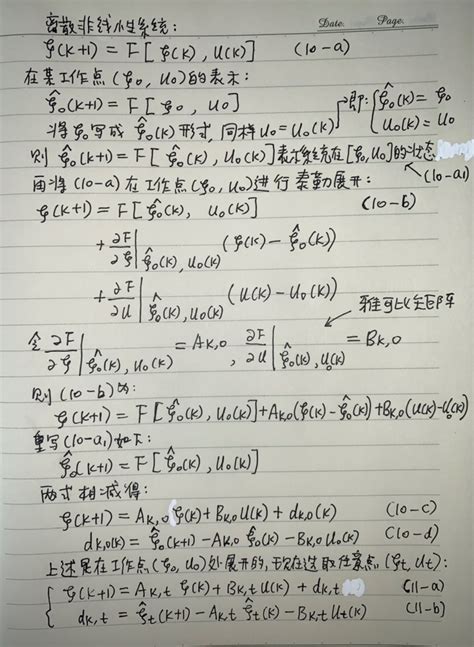 离散非线性系统:
Date.    Page.
ξ(k+1) = F[ξ(k), u(k)]    (10-a)
在某工作点(ξ₀, u₀)的表示:
ξ̂₀(k+1) = F[ξ₀, u₀]
将ξ₀写成ξ̂₀(k)形式, 同样u₀=u₀(k) 即: { ξ̂₀(k) = ξ₀
u₀(k) = u₀
则 ξ̂₀(k+1) = F[ξ̂₀(k), u₀(k)]表示系统在[ξ₀,u₀]的状态
(10-a1)
再将(10-a)在工作点(ξ₀, u₀)进行泰勒展开:
ξ(k+1) = F[ξ̂₀(k), u₀(k)]    (10-b)
+ ∂F/∂ξ|ξ̂₀(k), u₀(k) (ξ(k) - ξ̂₀(k))
+ ∂F/∂u|ξ̂₀(k), u₀(k) (u(k) - u₀(k))
雅可比矩阵
令 ∂F/∂ξ|ξ̂₀(k), u₀(k) = Ak,0 , ∂F/∂u|ξ̂₀(k), u₀(k) = Bk,0
则(10-b)为:
ξ(k+1) = F[ξ̂₀(k), u₀(k)] + Ak,0(ξ(k) - ξ̂₀(k)) + Bk,0(u(k) - u₀(k))
重写(10-a1)如下:
ξ̂₀(k+1) = F[ξ̂₀(k), u₀(k)]
两式相减得:
ξ(k+1) = Ak,0 ξ(k) + Bk,0 u(k) + dk,0(k)    (10-c)
dk,0(k) = ξ̂₀(k+1) - Ak,0 ξ̂₀(k) - Bk,0 u₀(k)    (10-d)
上述是在工作点(ξ₀, u₀)处展开的, 现在选取任意点(ξt, ut):
{ ξ(k+1) = Ak,t ξ(k) + Bk,t u(k) + dk,t    (11-a)
dk,t = ξ̂t(k+1) - Ak,t ξ̂t(k) - Bk,t ut(k)    (11-b)